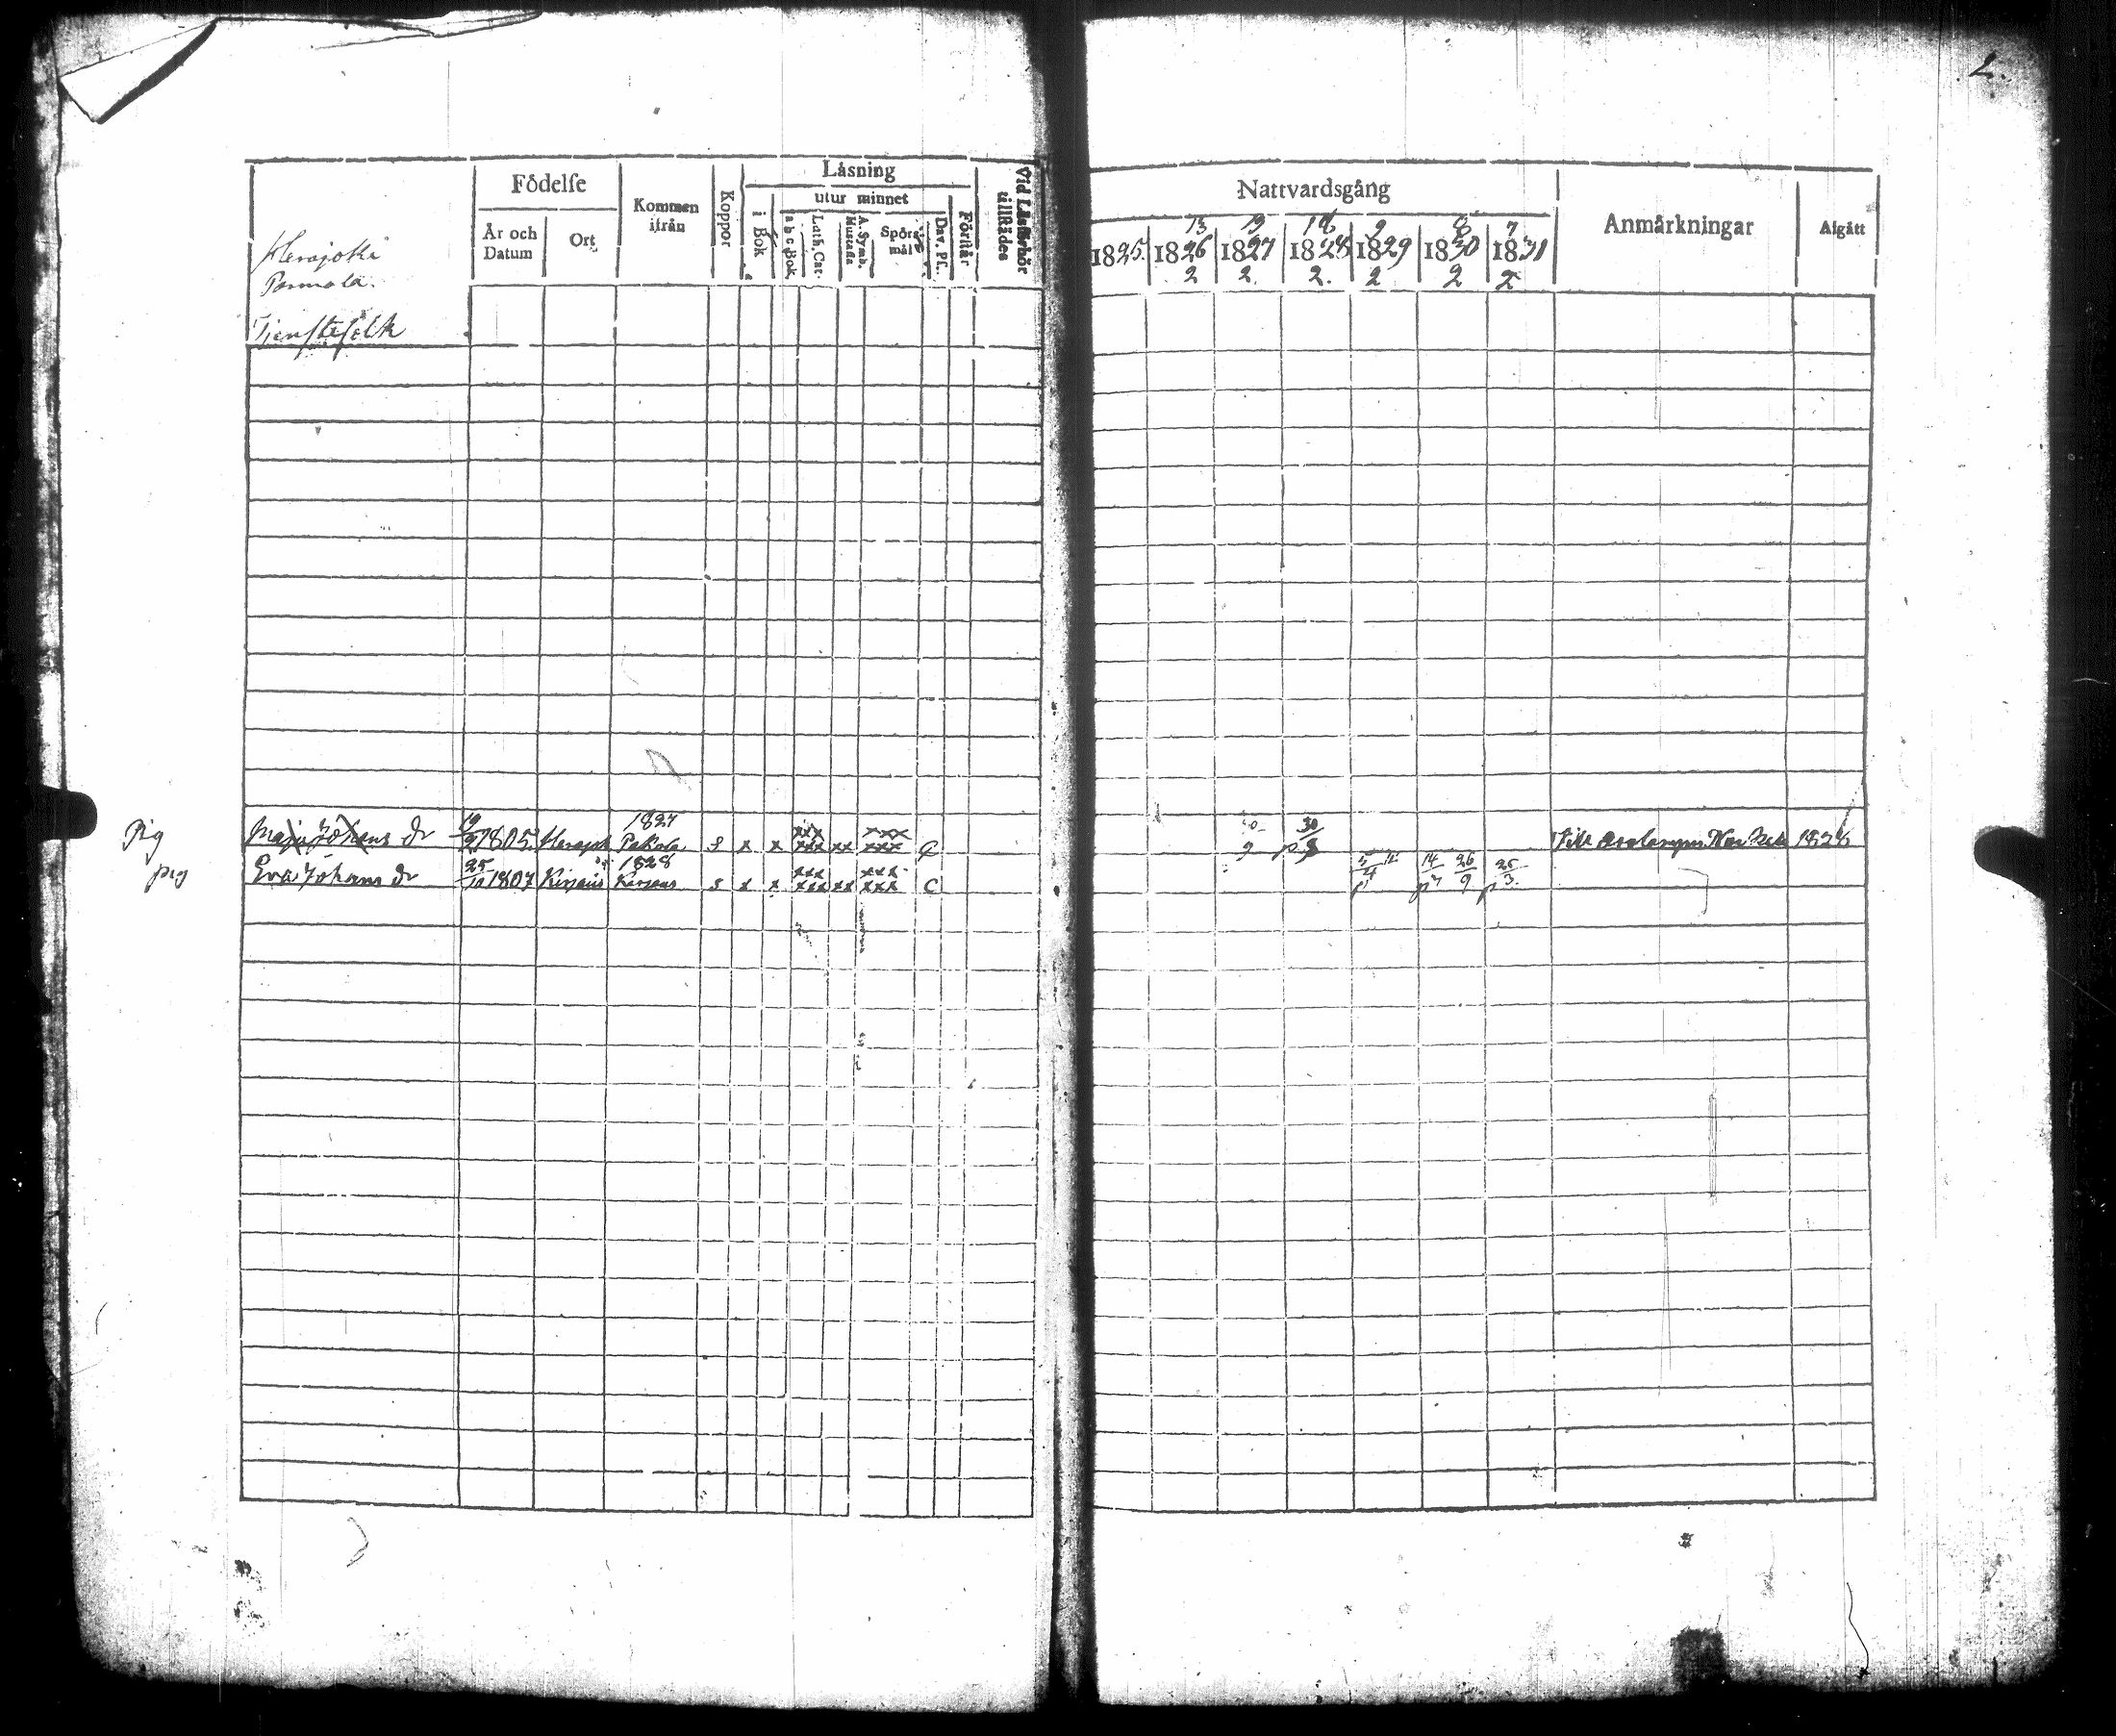 2.
Herajoki
Parmala.
Tjenstefolk
Födelse
År och Datum
Ort
Kommen ifrån
Koppor
Läsning
i Bok
utur minnet
a b c Bok
Luth. Cat.
A. Symb.
Spörsmål
Dav. Ps.
Förstår
Vid Läsförhör tillstädes
Nattvardsgång
13 19 18 9 8 7
1825. 1826 1827 1828 1829 1830 1831
2 2. 2. 2 2 2
Anmärkningar
Afgått
Pig Maja Johans dr 19/9 1805. Herajok 1827 Pakola s x x xxx xxx xx xxx xxx C 30 Till 1828
pig Eva Johans dr 25/10 1807 1828 s x x xxx xxx xx xxx xxx C 14 26/9 25/3